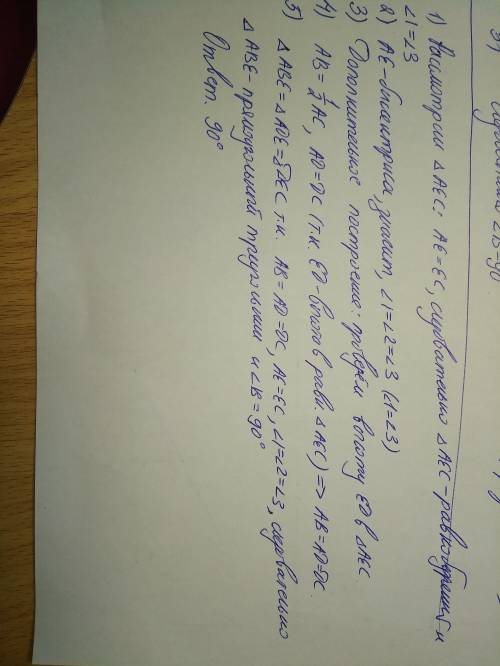 ∠B=90
1) Рассмотрим △AEC: AE=EC, следовательно △AEC-равнобедренный и
∠1=∠3
2) AE-биссектриса, значит, ∠1=∠2=∠3 (∠1=∠3)
3) Дополнительное построение: проведём высоту ED в △AEC
4) AB=½AC, AD=DC (т.к. ED-высота в равн. △AEC) => AB=AD=DC
5) △ABE=△ADE=△DEC т.к. AB=AD=DC, AE=EC, ∠1=∠2=∠3, следовательно
△ABE-прямоугольный треугольник и ∠B=90°
Ответ. 90°